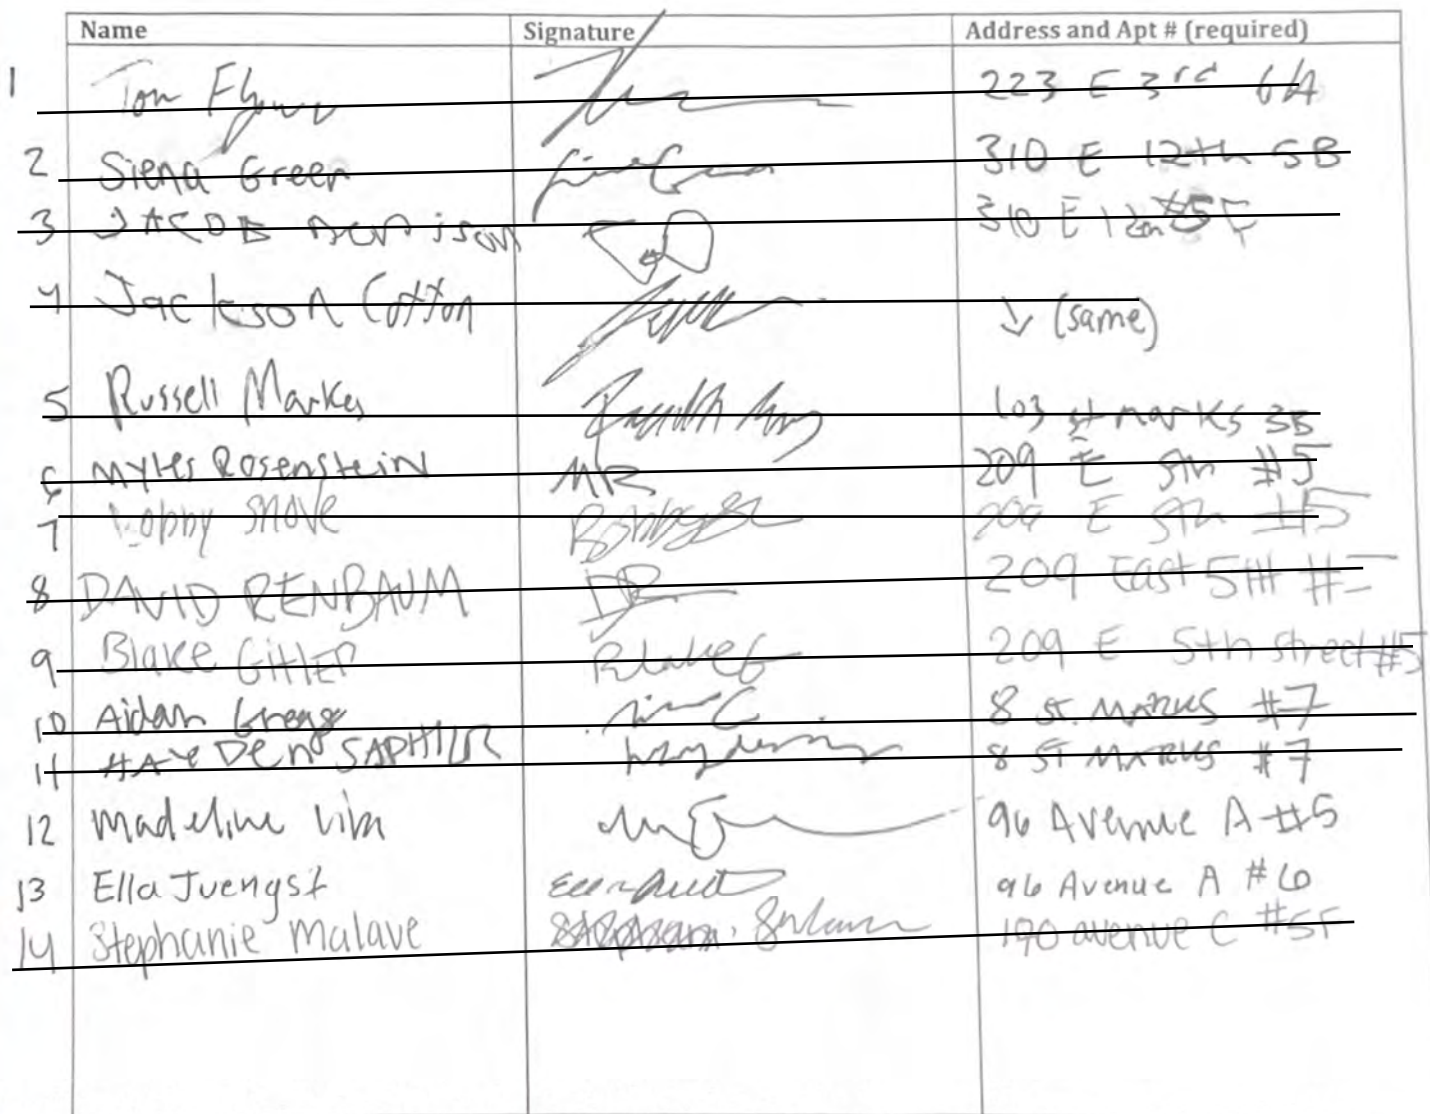 Name Signature Address and Apt # (required)
1 Tom Flynn 223 E 3rd 6A
2 Siena Green 310 E 12th 5B
3 JACOB 310 E 12th
4 Jackson Cotton ↓ (same)
5 Russell Markes 103 st marks 3B
6 Myles Rosenstein MR 209 E 5th #5
7 Bobby E 5th #5
8 DAVID RENBAUM DR 209 East 5th #5
9 Blake Gitler Blake G 209 E 5th Street #5
10 Aidan 8 ST. MARKS #7
11 HAYDEN SAPHIR 8 ST MARKS #7
12 Madeline 96 Avenue A #5
13 Ella Juengst 96 Avenue A #6
14 Stephanie Malave 190 avenue C #5F